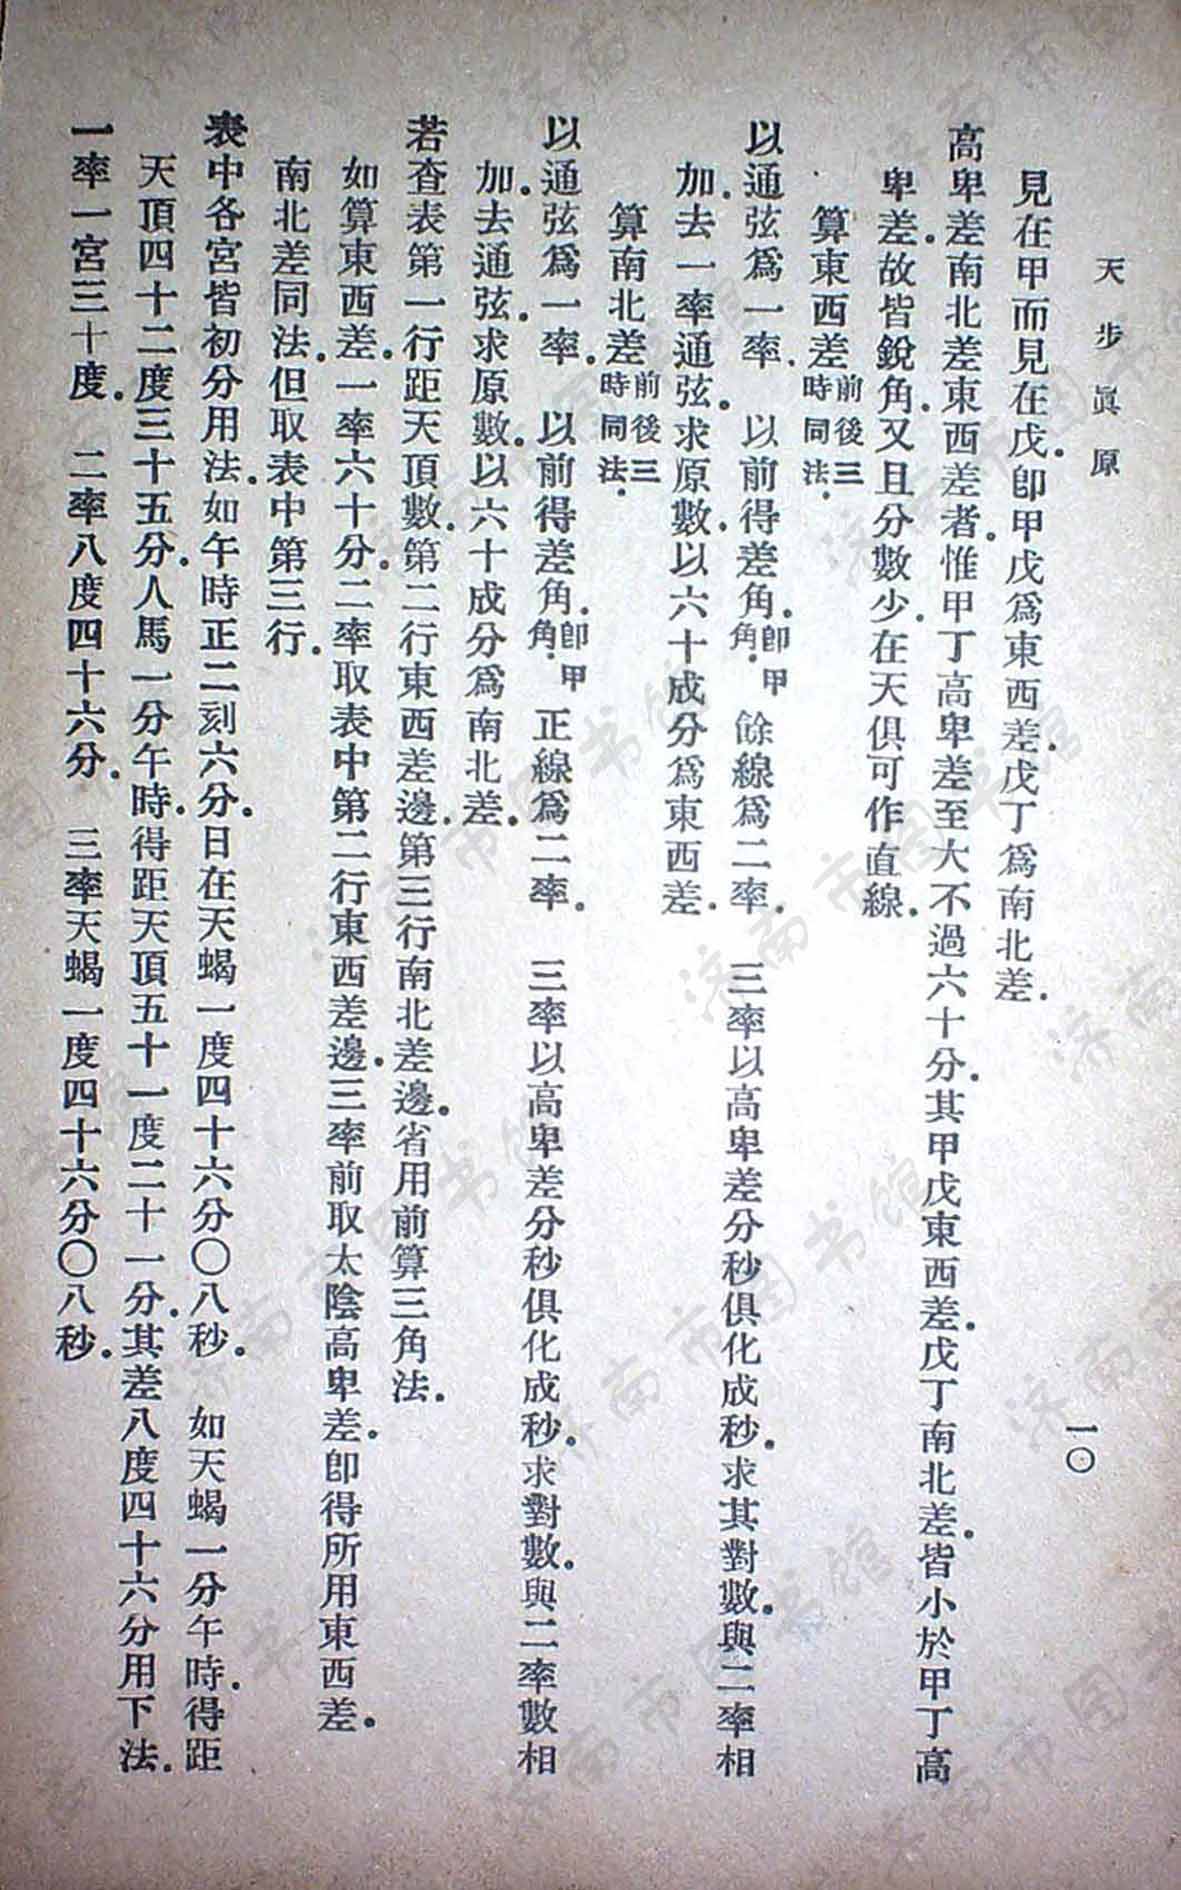 天步眞原
一〇
見在甲而見在戊.卽甲戊爲東西差.戊丁爲南北差.
高卑差南北差東西差者.惟甲丁高卑差至大不過六十分.其甲戊東西差.戊丁南北差.皆小於甲丁高
卑差.故皆銳角.又且分數少.在天俱可作直線.
算東西差前後三時同法.
以通弦爲一率.　以前得差角.卽甲角.　餘線爲二率.　三率以高卑差分秒俱化成秒.求其對數.與二率相
加.去一率通弦.求原數.以六十成分爲東西差.
算南北差.前後三時同法.
以通弦爲一率.　以前得差角.卽甲角.　正線爲二率.　三率以高卑差分秒俱化成秒.求對數.與二率數相
加.去通弦.求原數.以六十成分爲南北差.
若查表第一行距天頂數.第二行東西差邊.第三行南北差邊.省用前算三角法.
如算東西差.一率六十分.二率取表中第二行東西差邊.三率前取太陰高卑差.卽得所用東西差.
南北差同法.但取表中第三行.
表中各宮皆初分用法.如午時正二刻六分.日在天蝎一度四十六分〇八秒.　如天蝎一分午時.得距
天頂四十二度三十五分.人馬一分午時.得距天頂五十一度二十一分.其差八度四十六分用下法.
一率一宮三十度.　二率八度四十六分.　三率天蝎一度四十六分〇八秒.
济南市图书馆